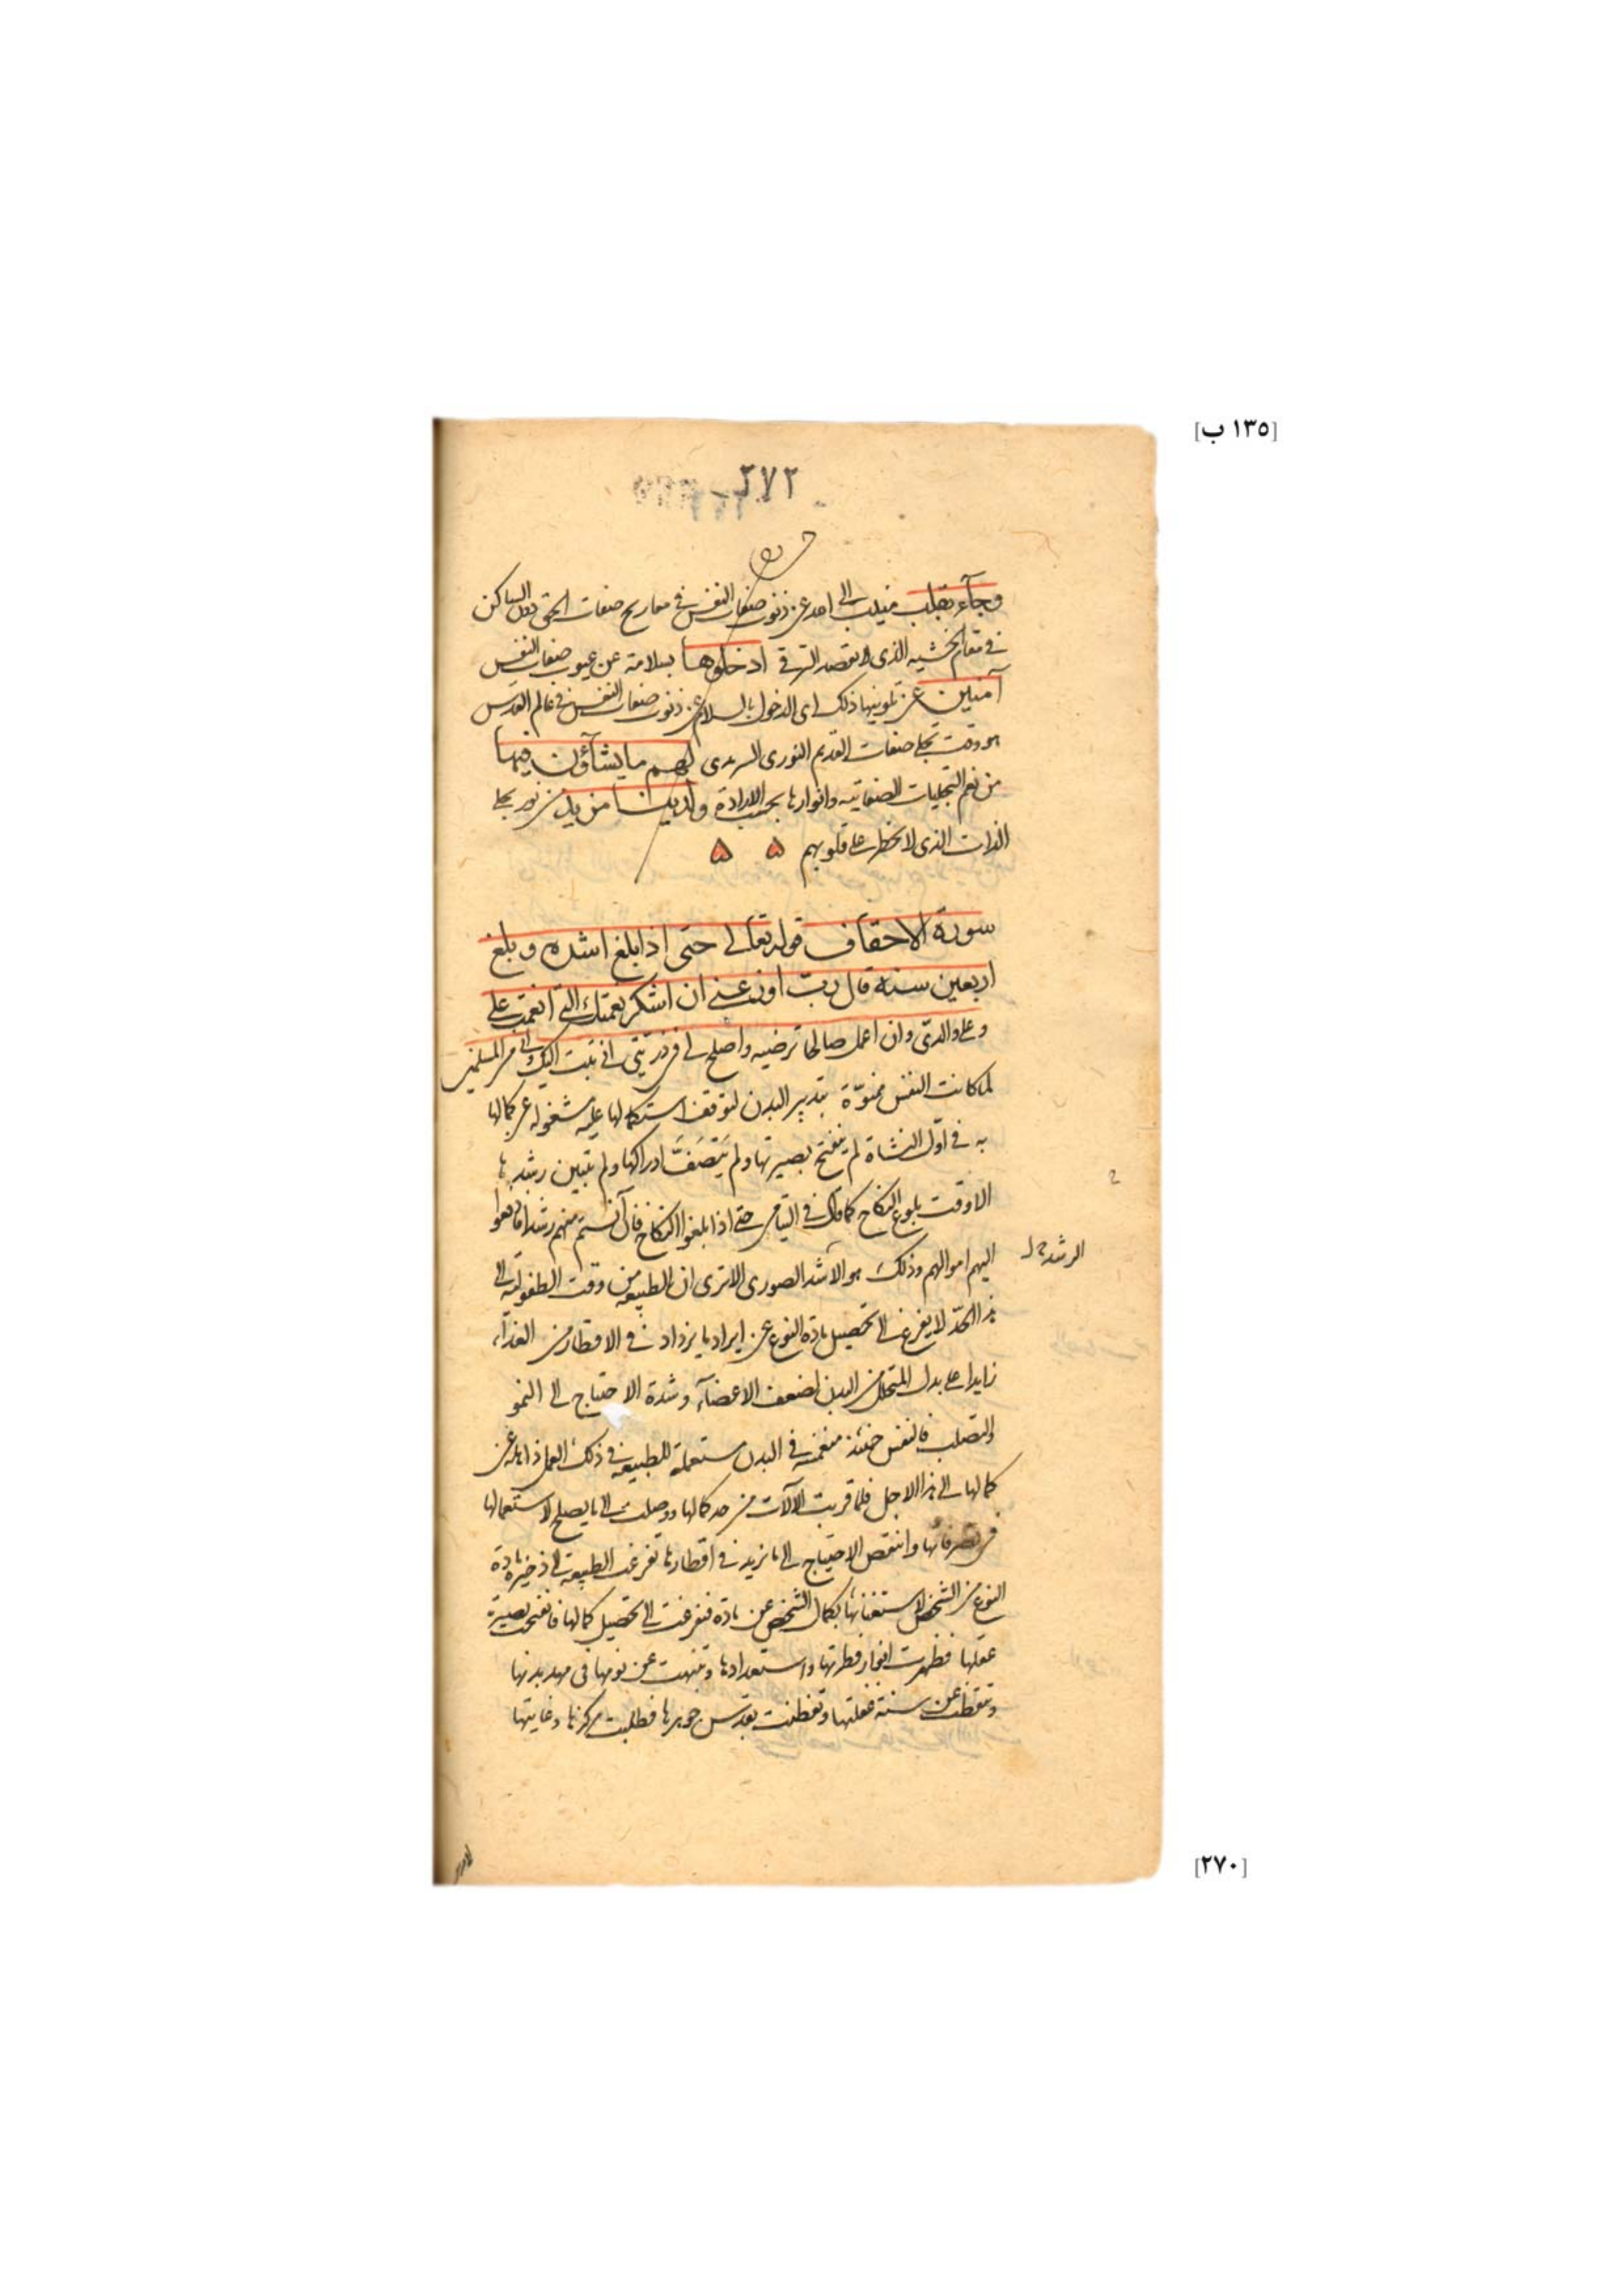 [١٣٥ ب]
٢٧٢
وجآء بقلب منيب الى احد عن ذنوب صفات النفس فى معاريج صفات الحق دون الساكن
فى مقام الخشيه الذى لا يقصد الترقى ادخلوها بسلامة عن عيوب صفات النفس
آمنين عن تلوينها ذلك اى الدخول بالسلام عن ذنوب صفات النفس فى عالم القدس
هو وقت تجلى صفات القديم النورى السرمدى لهم ما يشآؤن فيها
من نعم التجليات الصفاتيه وانوارها بحسب الارادة ولدينا مزيد من نور تجلى
الذات الذى لا يخطر على قلوبهم ۵ ۵
سورة الاحقاف قوله تعالى حتى اذا بلغ اشده وبلغ
اربعين سنة قال رب اوزعنى ان اشكر نعمتك التى انعمت على
وعلى والدىّ وان اعمل صالحا ترضيه واصلح لى فى ذريتى انى تبت اليك وانى من المسلمين
لما كانت النفس ممنوّة بتدبير البدن لتوقف استكمالها عليه مشغوله عن كمالها
به فى اوّل النشاة لم ينفتح بصيرتها ولم يَتَصَفَّ ادراكها ولم يتبين رشدها
الا وقت بلوغ النكاح كما قال فى اليتامى حتى اذا بلغوا النكاح فان آنستم منهم رشدا فادفعوا
اليهم اموالهم وذلك هو الاشد الصورى الا ترى ان الطبيعه من وقت الطفولة الى
الرشد
هذا الحدّ لا يفرغ الى تحصيل مادة النوع عن ايراد ما يزداد فى الاقطار من الغذآء
زايدا على بدل المتحلل من البدن لضعف الاعضآء وشدة الاحتياج الى النمو
والتصلب فالنفس حينئذ منغمسة فى البدن مستعملة للطبيعه فى ذلك العمل ذاهله عن
كمالها الى هذا الاجل فلما قربت الآلات من حد كمالها ووصلت الى ما يصلح لاستعمالها
فى تصرفاتها وانتقص الاحتياج الى ما يزيد فى اقطارها تفرغت الطبيعة الى ذخيرة مادة
النوع من الشخص لاستغنائها بكمال الشخص عن مادة فتفرغت الى تحصيل كمالها فانفتحت بصيرة
عقلها فظهرت انوار فطرتها واستعدادها وتنبهت عن نومها فى مهد بدنها
وتيقظت عن سنة غفلتها وتفطنت بقدس جوهرها فطلبت مركزها وغايتها
[٢٧٠]